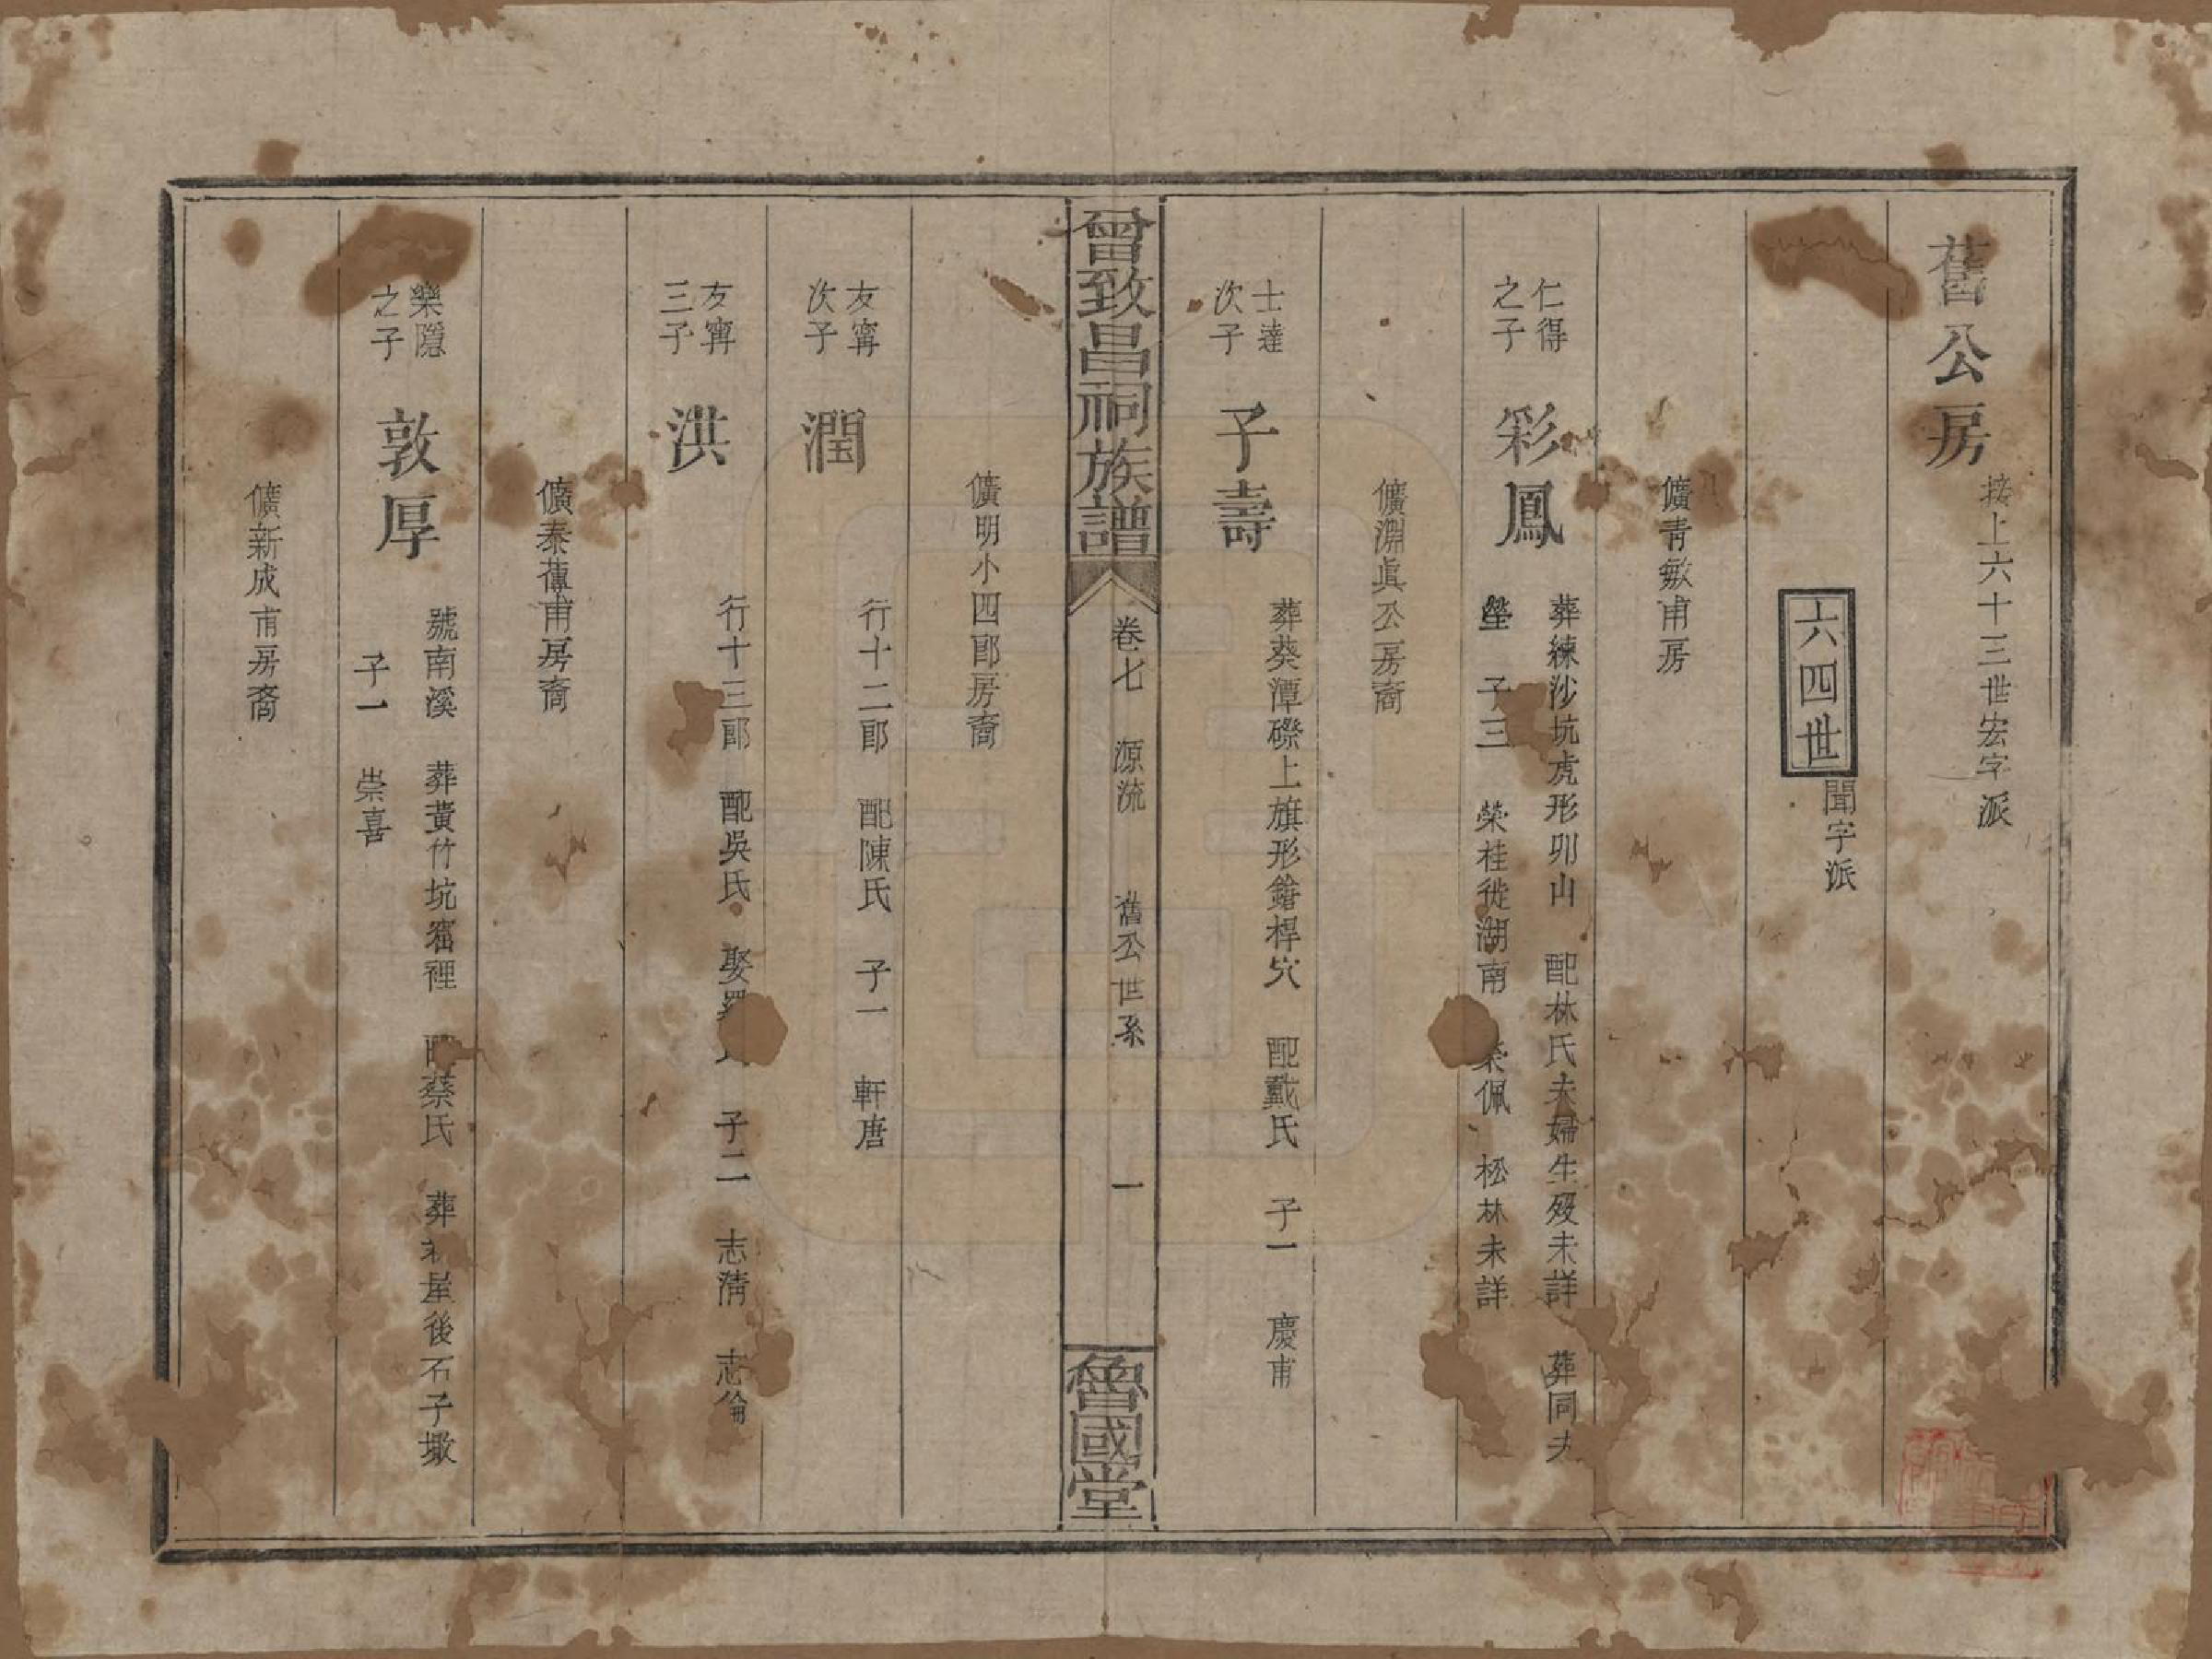 舊公房
按上六十三世宏字派
六四世
聞字派
儣青敏甫房
仁得之子
彩鳳
葬練沙坑虎形卯山 配林氏夫婦生歿未詳 葬同夫
塋 子三 榮桂徙湖南 榮佩 松林未詳
儣淵眞公房裔
士達次子
子壽
葬葵潭磜上旗形鎗桿穴 配戴氏 子一 慶甫
曾致昌祠族譜
卷七 源流 舊公世系 一
魯國堂
儣明小四郎房裔
友寗次子
潤
行十二郎 配陳氏 子一 軒唐
友寗三子
洪
行十三郎 配吳氏 娶 子二 志淸 志倫
儣泰傳甫房裔
樂隱之子
敦厚
號南溪 葬黃竹坑窩裡 配蔡氏 葬 屋後石子墩
子一 崇喜
儣新成甫房裔